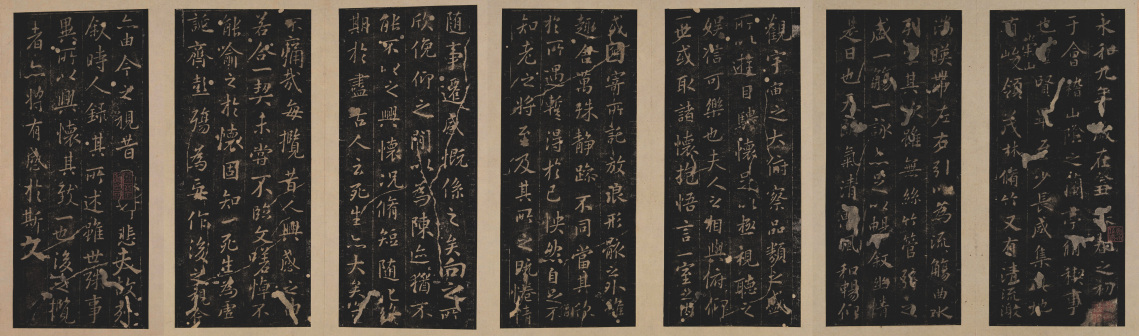 永和九年歲在癸丑暮春之初
于會稽山陰之蘭亭脩稧事
也群賢畢至少長咸集此地
有崇山峻領茂林脩竹又有清流激
湍暎帶左右引以為流觴曲水
列坐其次雖無絲竹管弦之
盛一觴一詠亦足以暢叙幽情
是日也天朗氣清惠風和暢仰
觀宇宙之大俯察品類之盛
所以遊目騁懷足以極視聽之
娛信可樂也夫人之相與俯仰
一世或取諸懷抱悟言一室之內
或因寄所託放浪形骸之外雖
趣舍萬殊靜躁不同當其欣
於所遇蹔得於己怏然自足不
知老之將至及其所之既惓情
隨事遷感慨係之矣向之所
欣俛仰之閒以為陳迹猶不
能不以之興懷況脩短隨化終
期於盡古人云死生亦大矣豈
不痛哉每攬昔人興感之由
若合一契未嘗不臨文嗟悼不
能喻之於懷固知一死生為虛
誕齊彭殤為妄作後之視今
亦由今之視昔悲夫故列
叙時人錄其所述雖世殊事
異所以興懷其致一也後之攬
者亦將有感於斯文